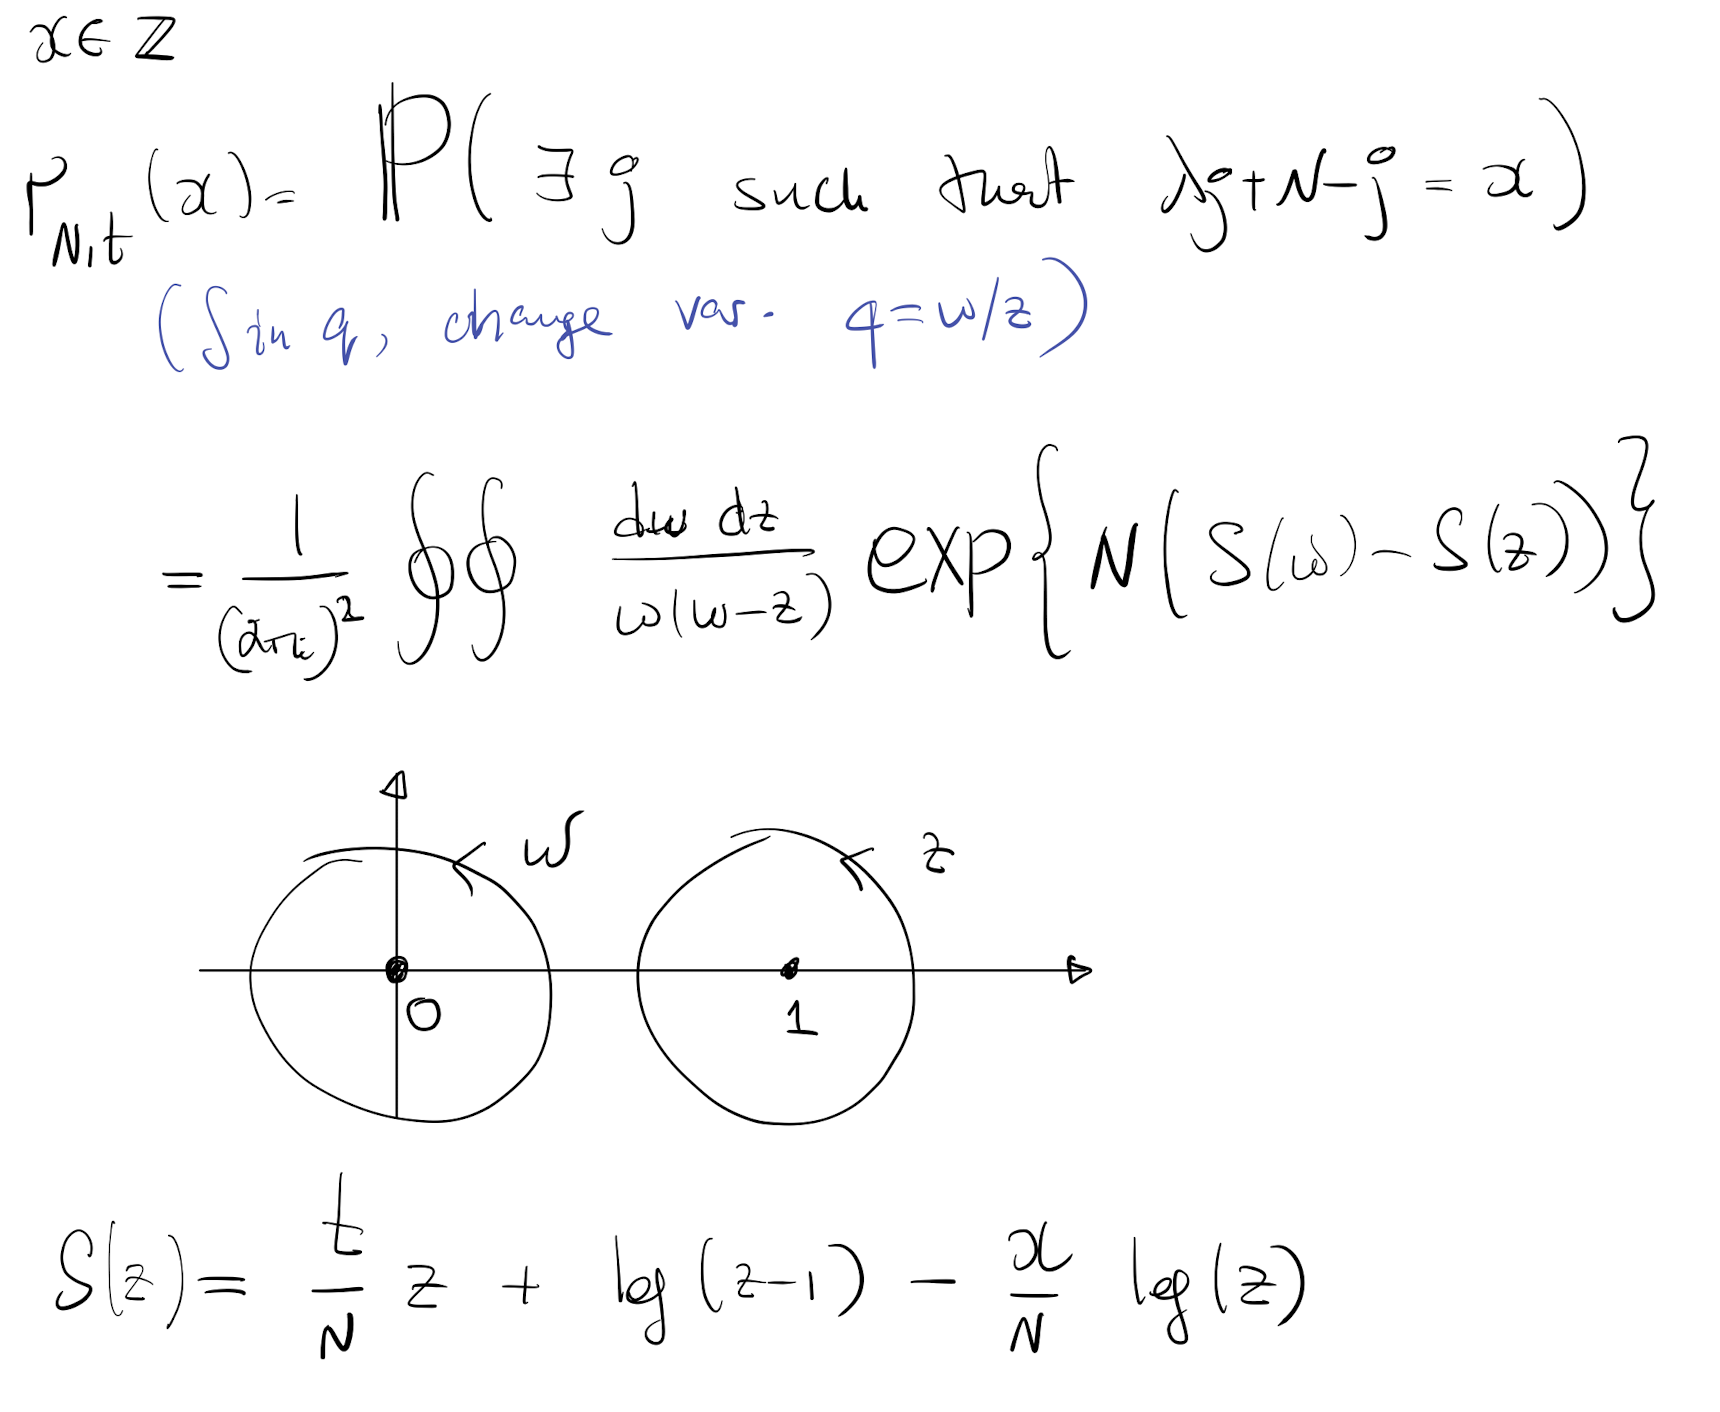 x ∈ ℤ
ρ_{N,t}(x) = ℙ( ∃ j such that λj + N − j = x )
(∫ in q, change var. q = w/z)
= \frac{1}{(2πi)^2} ∮∮ \frac{dw dz}{w(w−z)} exp{ N( S(w) − S(z) ) }
w z
0 1
S(z) = \frac{t}{N} z + log(z−1) − \frac{x}{N} log(z)